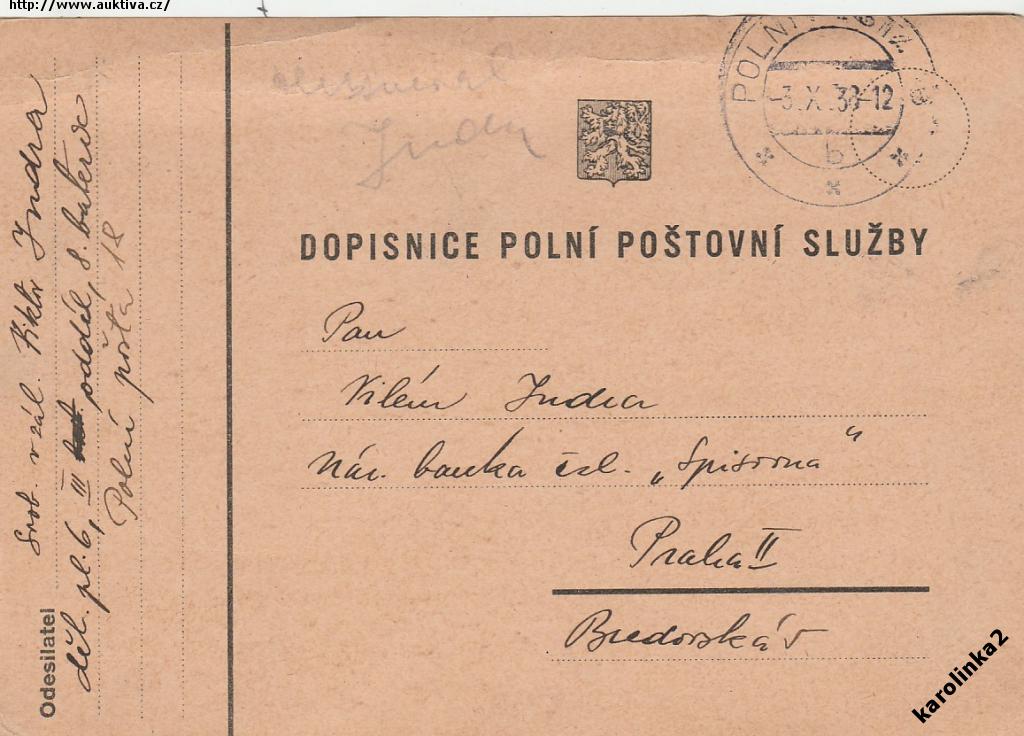 http://www.auktiva.cz/
Indra
POLNÍ POŠTA
-3.X.38-12
b
DOPISNICE POLNÍ POŠTOVNÍ SLUŽBY
Pan
Vilém Indra
Nár. banka čsl. „Spisovna“
Praha II
Bredovská
Odesílatel
Svob. v zál. Viktor Indra
děl. pl. 6, III oddíl, 8. baterie
Polní pošta 18
karolinka2